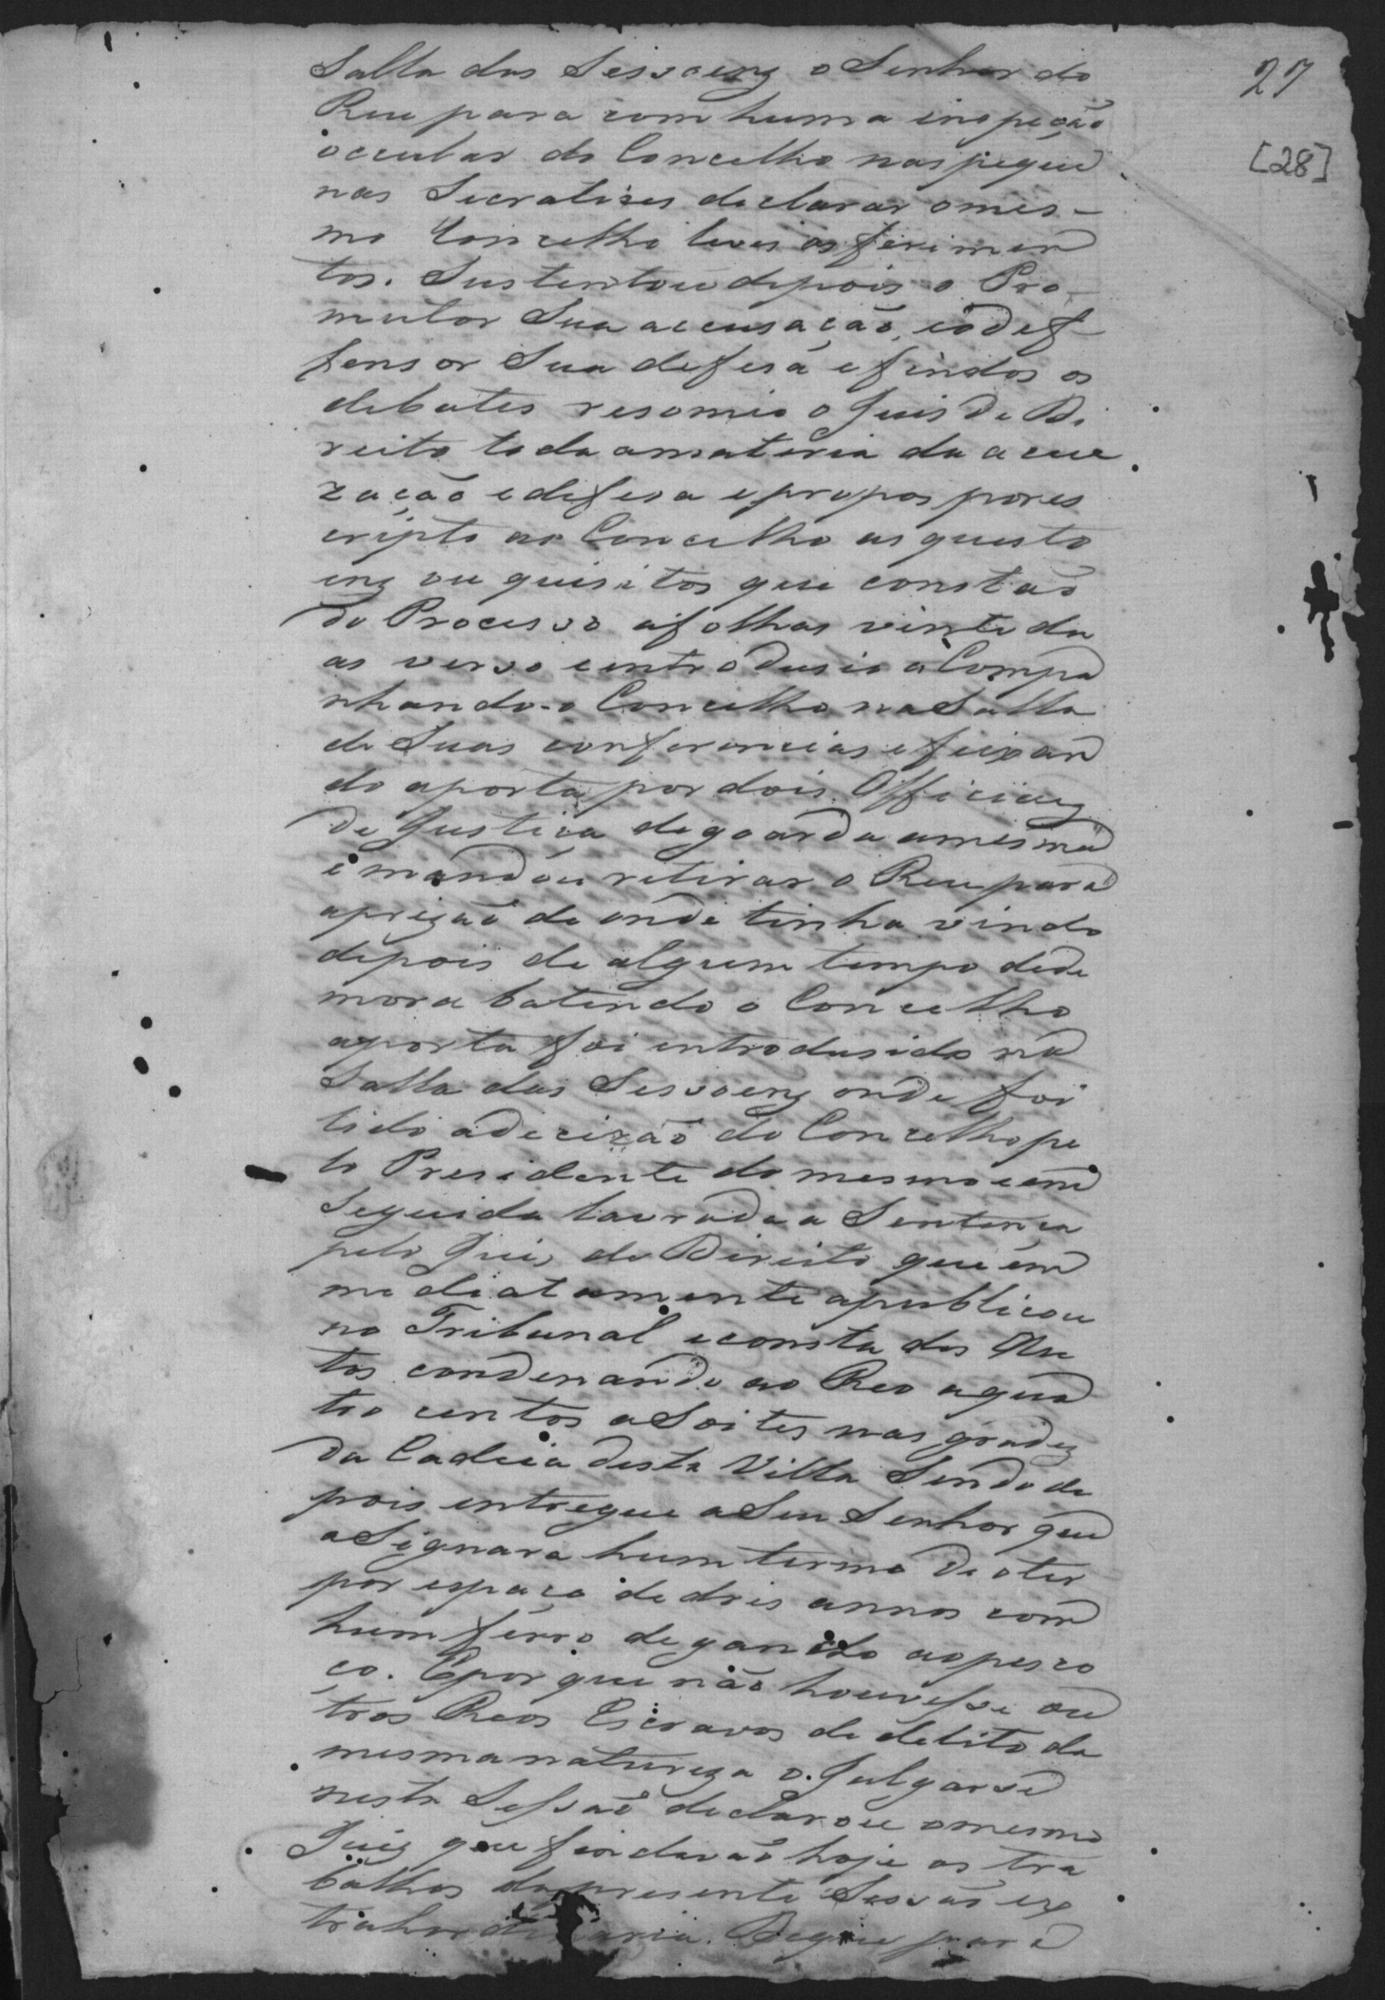 27
[28]
Salla das Sessoens o Senhor do
Reu para com huma inspeção
occular do Concelho nas peque
nas Sicratises declarar o mes-
mo Concelho leves os ferimen
tos. Sustentou depois o Pro-
mutor Sua accusação, e o def
fensor Sua defesa e findos os
debates resomio o Juis de Di
reito toda amateria da acu
zação e defesa e propos por es
cripto ao Concelho as questo
ens ou quisitos que constão
do Processo afolhas vinte du
as verso e entrodusio acompa
nhando-o Concelho na Salla
de Suas conferencias e feixan
do aporta por dois Officiaes
de Justiça de goarda amesma
e mandou retirar o Reu para
aprizão de onde tinha vindo
depois de algum tempo dede
mora batendo o Concelho
aporta foi entrodusido na
Salla das Sessoens onde foi
lido adecizão do Concelho pe
lo Presidente do mesmo e em
Seguida lavrada a Sentença
pelo Juis de Direito que em
mediatamente apublicou
no Tribunal e consta dos Au
tos condenando ao Reo a qua
tro centos aSoites nas grades
da Cadeia desta Villa Sendo de
pois entregue aSeu Senhor que
aSignara hum termo de o ter
por espaço de dois annos com
hum ferro de gancho ao pesco
ço. E por que não houvesse ou
tros Reos Escravos de delito da
mesma natureza a Julgarse
nesta Sessão declarou o mesmo
Juiz que findavão hoje os tra
balhos da presente Sessão ex
trahordinaria. Do que para